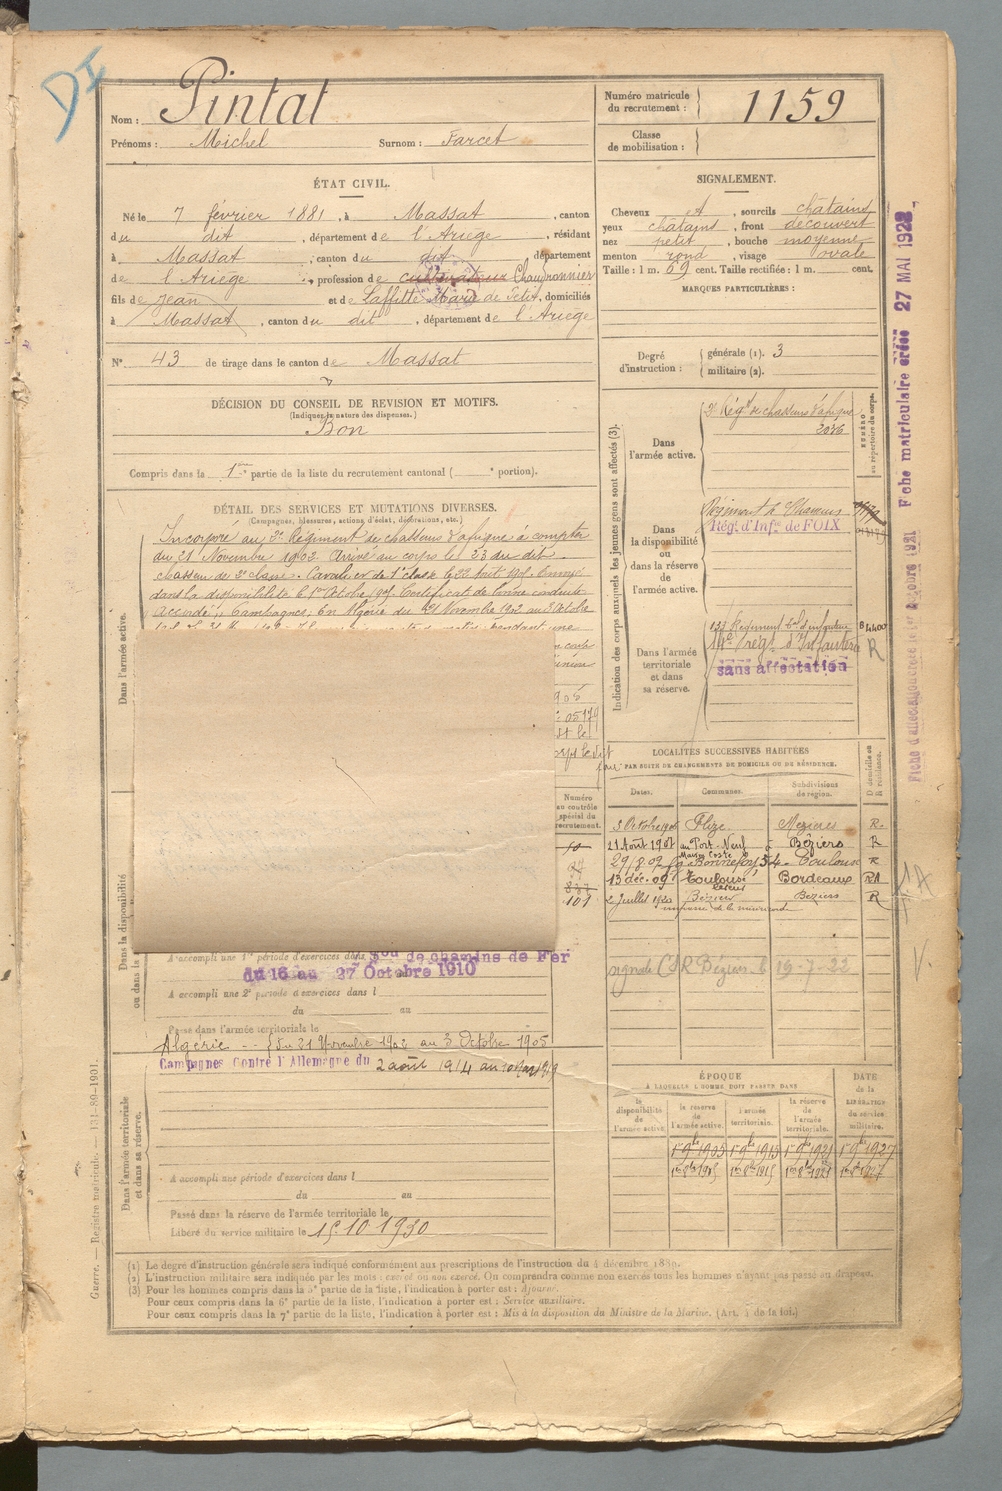 DI
Nom : Pintat
Prénoms : Michel Surnom : Farcet
Numéro matricule du recrutement : 1159
Classe de mobilisation :
ÉTAT CIVIL.
Né le 7 février 1881, à Massat, canton
du dit, département de l'Ariège, résidant
à Massat, canton du dit, département
de l'Ariège, profession de cultivateur Chaudronnier
fils de Jean et de Laffitte Marie de Petit, domiciliés
à Massat, canton du dit, département de l'Ariège
N° 43 de tirage dans le canton de Massat
SIGNALEMENT.
Cheveux et, sourcils châtains
yeux châtains, front découvert
nez petit, bouche moyenne
menton rond, visage ovale
Taille : 1 m. 69 cent. Taille rectifiée : 1 m. cent.
MARQUES PARTICULIÈRES :
Degré d'instruction : générale (1). 3
militaire (2).
DÉCISION DU CONSEIL DE REVISION ET MOTIFS.
(Indiquer la nature des dispenses.)
Bon
Compris dans la 1re partie de la liste du recrutement cantonal ( e portion).
DÉTAIL DES SERVICES ET MUTATIONS DIVERSES.
(Campagnes, blessures, actions d'éclat, décorations, etc.)
Dans l'armée active.
Incorporé au 3e Régiment de chasseurs d'afrique à compter
du 21 Novembre 1902. Arrivé au corps le 23 du dit
chasseur de 2e classe. Cavalier de 1e classe le 22 Août 1905. Envoyé
dans la disponibilité le 1er Octobre 1905. Certificat de bonne conduite
accordé. Campagnes: En Algérie du 21 Novembre 1902 au 3 Octobre
Dans la disponibilité
ou dans la
A accompli une 1re période d'exercices dans Son de chemins de Fer
du 16 au 27 Octobre 1910
A accompli une 2e période d'exercices dans l
du au
Passé dans l'armée territoriale le
Algérie - du 21 Novembre 1902 au 3 Octobre 1905
Dans l'armée territoriale et dans sa réserve.
Campagnes Contre l'Allemagne du 2 août 1914 au
A accompli une période d'exercices dans l
du au
Passé dans la réserve de l'armée territoriale le
Libéré du service militaire le 15.10.1930
Indication des corps auxquels les jeunes gens sont affectés (3).
NUMÉRO au répertoire du corps.
Dans l'armée active.
3e Régt de chasseurs d'afrique
Dans la disponibilité ou dans la réserve de l'armée active.
Régiment à Chasseurs
Régt d'Infie de FOIX
Dans l'armée territoriale et dans sa réserve.
133 Régiment tal d'infanterie
14e régt d'Infanterie
R
sans affectation
LOCALITÉS SUCCESSIVES HABITÉES
PAR SUITE DE CHANGEMENTS DE DOMICILE OU DE RÉSIDENCE.
Numéro au contrôle spécial du recrutement.
Dates. Communes. Subdivisions de région. D domicile ou R résidence.
3 Octobre 1906 Flize Mézières R.
21 Août 1907 au Port-Neuf à Béziers R
29/8.09 Bonnefoy 54 Toulouse R
13 déc. 09 Toulouse Bordeaux
101 2 Juillet 1920 Béziers Béziers R
signalé CSR Béziers le 19-7-22
ÉPOQUE
À LAQUELLE L'HOMME DOIT PASSER DANS
DATE de la LIBÉRATION du service militaire.
la disponibilité de l'armée active.
la réserve de l'armée active.
l'armée territoriale.
la réserve de l'armée territoriale.
Fiche matriculaire créée 27 MAI 1922
V.
Guerre. — Registre matricule. — 131-89-1901.
(1) Le degré d'instruction générale sera indiqué conformément aux prescriptions de l'instruction du 4 décembre 1889.
(2) L'instruction militaire sera indiquée par les mots : exercé ou non exercé. On comprendra comme non exercés tous les hommes n'ayant pas passé au drapeau.
(3) Pour les hommes compris dans la 5e partie de la liste, l'indication à porter est : Ajourné.
Pour ceux compris dans la 6e partie de la liste, l'indication à porter est : Service auxiliaire.
Pour ceux compris dans la 7e partie de la liste, l'indication à porter est : Mis à la disposition du Ministre de la Marine. (Art. 4 de la loi.)